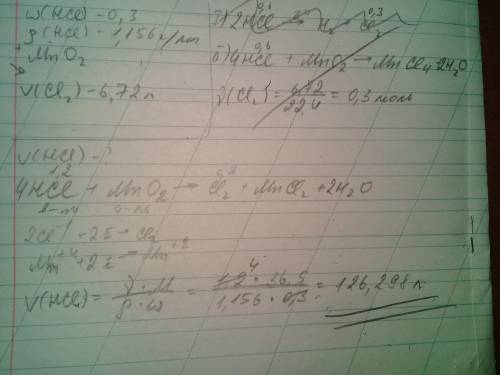 ω(HCl) - 0,3
ρ(HCl) - 1,156 г/мл
+ MnO₂
V(Cl₂) - 6,72 л
а) 2HCl → H₂ + Cl₂
0,6 0,3
0,6
б) 4HCl + MnO₂ → MnCl₄ 2H₂O
ν(Cl₂) = 6,72 / 22,4 = 0,3 моль
V(HCl) - ?
1,2 0,3
4HCl + MnO₂ → Cl₂ + MnCl₂ + 2H₂O
2Cl⁻ - 2ē → Cl₂
Mn⁺⁴ + 2ē → Mn⁺²
V(HCl) = ν · M / ρ · ω = 1,2 4 · 36,5 / 1,156 · 0,3 = 126,298 л